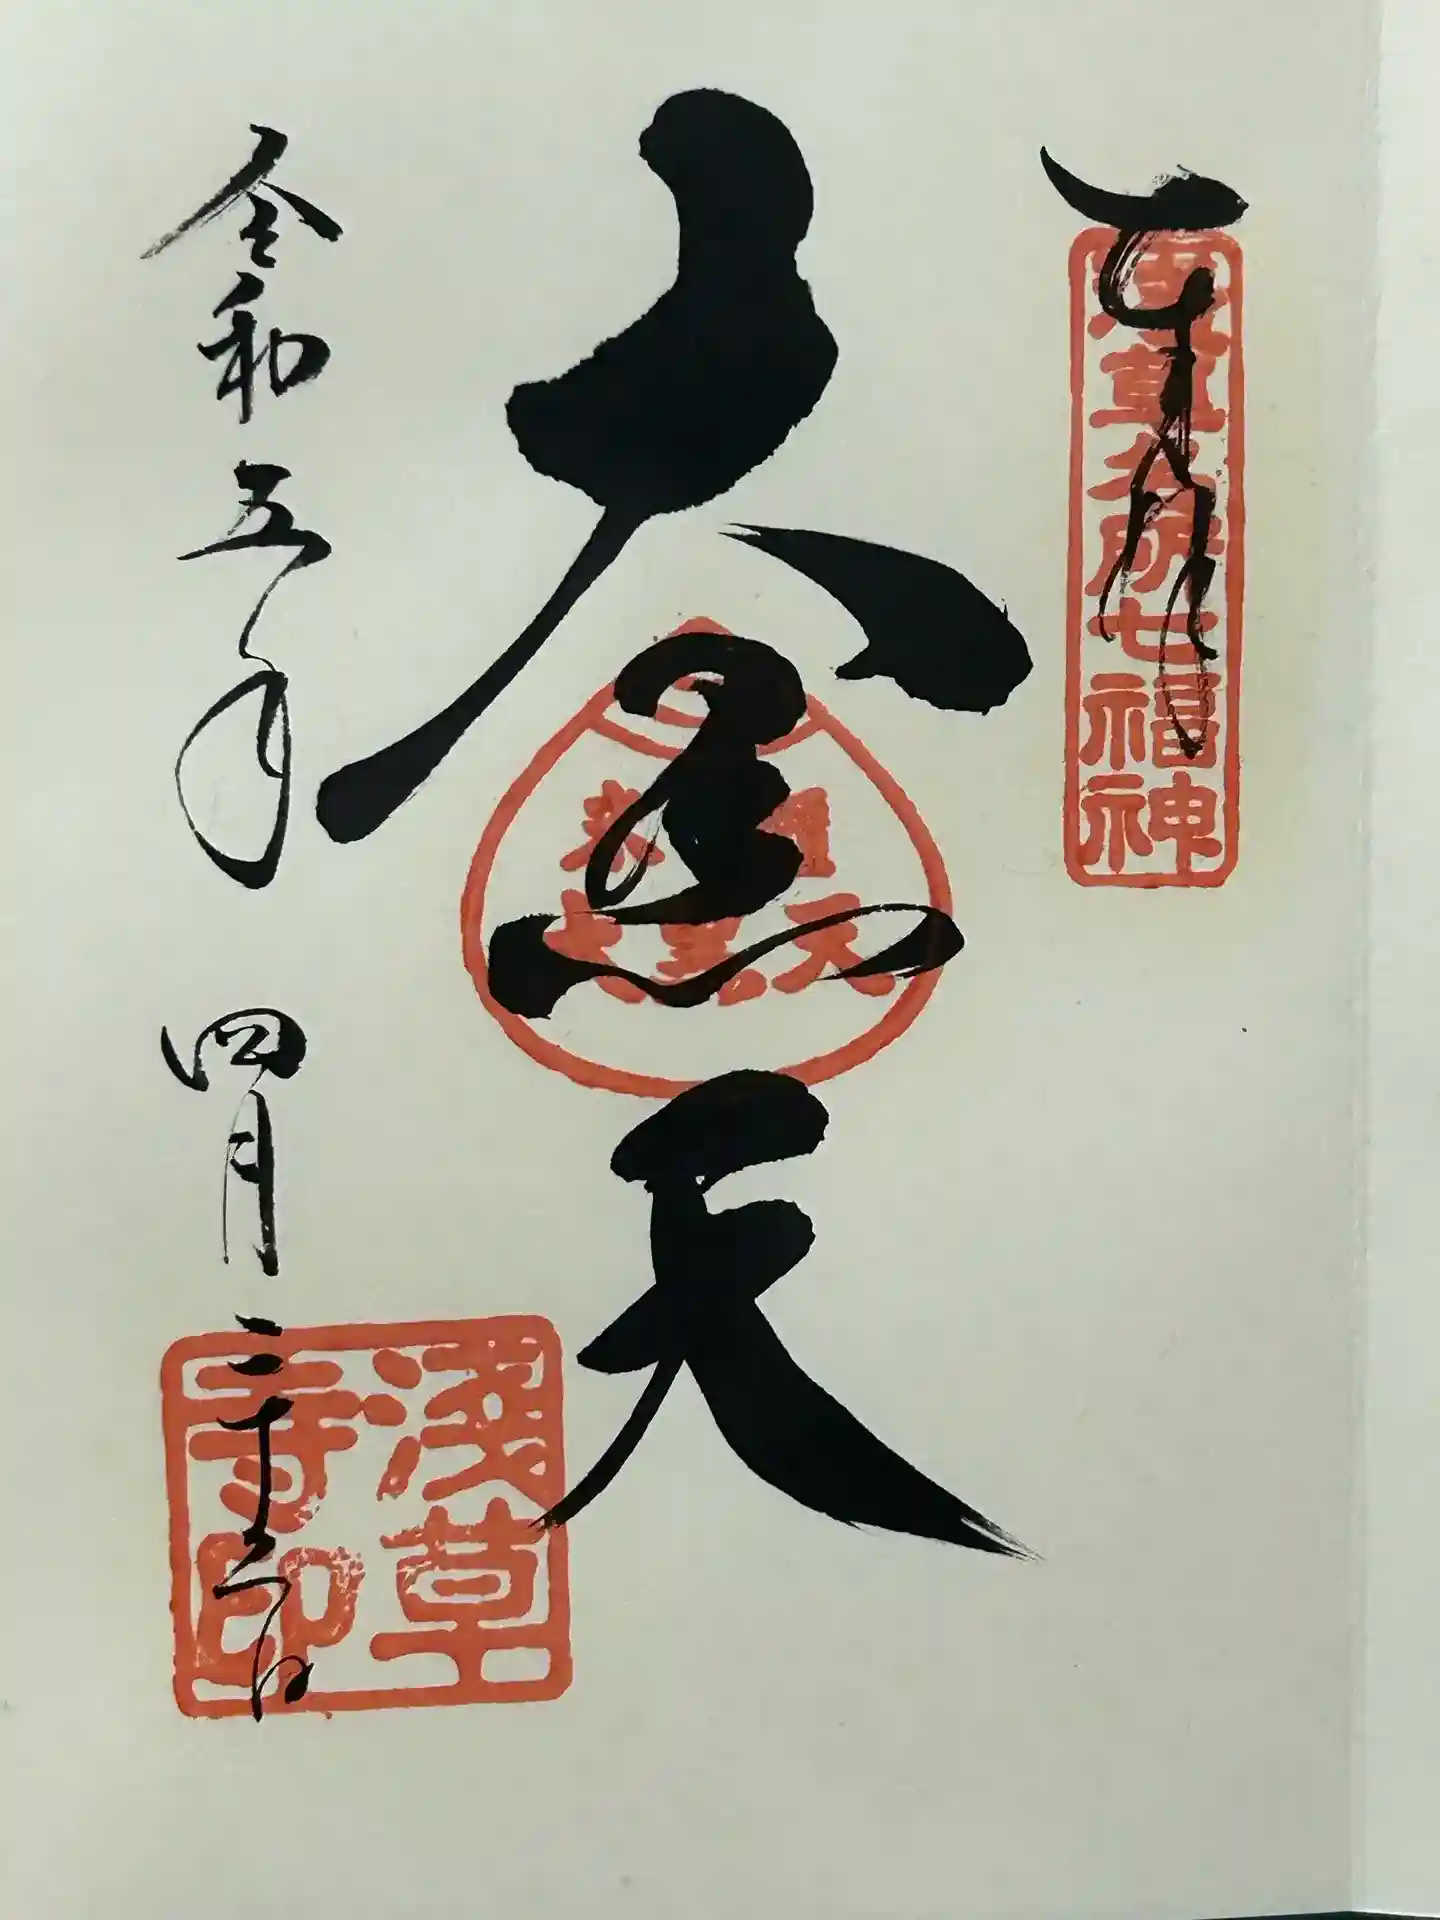 奉拝
浅草名所七福神
大黒天
米
大黒天
令和五年 四月二十
淺草
寺印